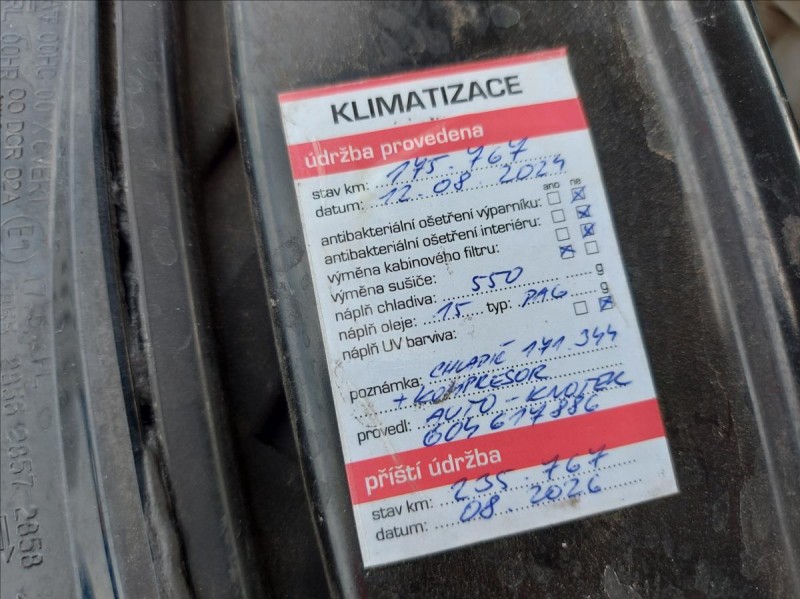 KLIMATIZACE
údržba provedena
stav km: 175.767
datum: 12.08.2024
ano ne
antibakteriální ošetření výparníku:
antibakteriální ošetření interiéru:
výměna kabinového filtru:
výměna sušiče:
náplň chladiva: 550 g
náplň oleje: 15 typ: PAG g
náplň UV barviva:
poznámka: CHLADIČ 171.344
+ KOMPRESOR
provedl: AUTO-KNOTEK
604 617 886
příští údržba
stav km: 235.767
datum: 08.2026
2857 2858